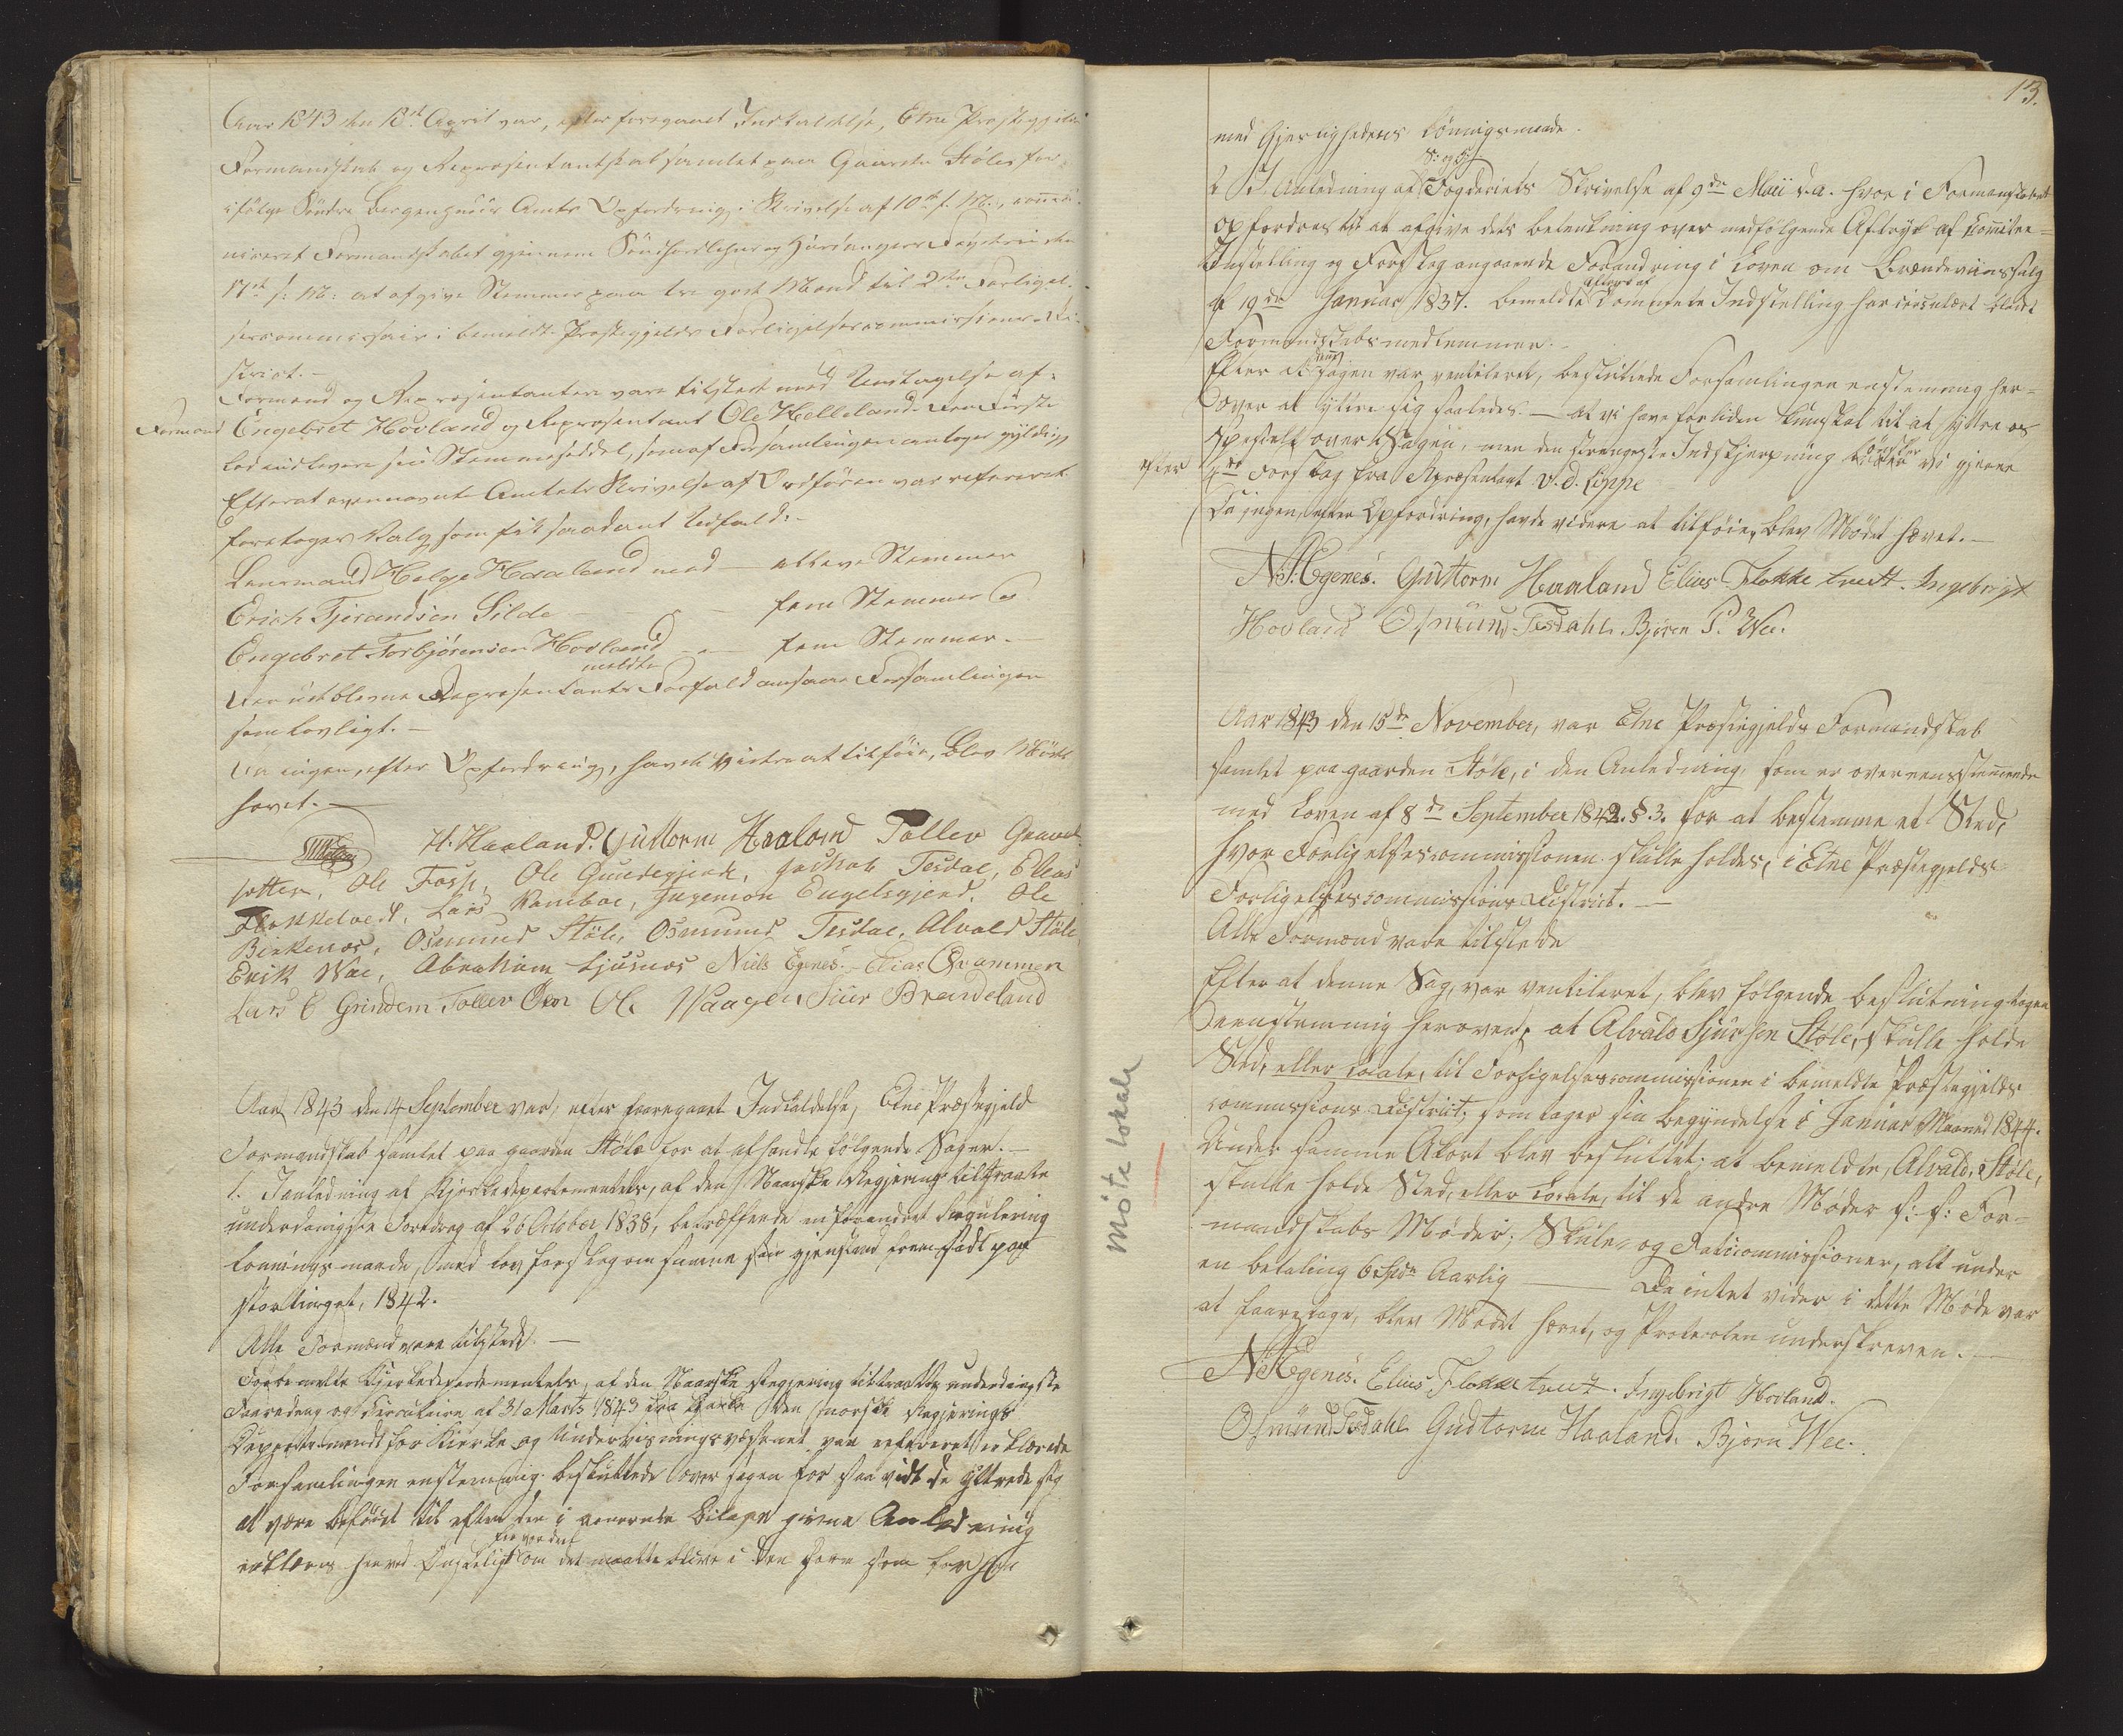 Aar 1843 den 12te April var, efter foregaaet Indkaldelse, Etne Præstegjelds
Formandskab og Repræsentantskab samlet paa Gaarden Støle for
ifølge Søndre Bergenhuus Amts Opfordring i Skrivelse af 10de f. M., commu-
niceret Formandskabet gjennem Søndhordlehns og Hardangers Fogderie den
17de f: M: at afgive Stemmer paa tre gode Mænd til 2den Forligel-
sescommissair i bemeldte Præstegjelds Forligelsescommissions Di-
strict. -
Formænd og Repræsentantere vare tilstede med Undtagelse af
Formand Engebret Hovland og Repræsentant Ole Helleland. Den Første
lod indlevere sin Stemmeseddel, som af Forsamlingen antoges gyldig
Efterat ovennævnte Amtets Skrivelse af Ordføren var refereret
foretoges Valg som fik saadant Udfald:-
Lensmand Helge Haaland med - elleve Stemmer
Erich Tjerandsen Silde - - fem Stemmer og
Engebret Torbjørensen Hovland - - fem Stemmer. -
meldte
Den udeblevne Repræsentants Forfald ansaae Forsamlingen
som lovligt. -
Da ingen, efter Opfordring, havde videre at tilføie, blev Mødet
hævet. -
H. Haaland. Guttorm Haaland Tollev Grave
sætter, Ole Fosse, Ole Gundegjerde, Jackob Tesdal, Elias
Flokketvedt, Lars Rambae, Ingemon Engelsgjerd. Ole
Birkenæs, Osmund Støle, Osmund Tesdal, Alvald Støle,
Erik Wae, Abraham Ljusnæs Niels Egenes. Elias Qvammen
Lars E Grindem Tollev Øen Ole Waagen Siur Brendeland
Aar 1843 den 14 September var, efter foregaaet Indkaldelse, Etne Præstegjeld
Formandskab samlet paa gaarden Støle for at afhandle følgende Sager. -
1. I anledning af Kjerkedepartementets, af den Naarske Regjering tiltraadte
underdanigste Foredrag af 26 October 1838, betræffende en forandret Regulering
lønnings maade, med lov forslag om samme sin gjenstand fremsadt paa
stortinget, 1842.
Alle Formænd vare tilstede. -
Forbemelte Kjerkedepardementets, af den Naarske Regjering tiltraadte underdanigste
Foredrag og Circulaire af 31 Marts 1843 fra den norske Regjerings
Departemendt for Kierke og Undervisningsvæsenet var refereret erklærede
Forsamlingen enstemmig besluttede over sagen for saa vidt de yttrede sig
at være beføiet til efter den i nævnte bilage givne Anledning
forandret
erklæres herved Ønskeligt om det maatte blive i den form som
13.
med Gjerlighedens lønningsmaade.
S: og H:
2 I Anledning af Fogderiets Skrivelse af 9de Maii d.a. hvor i Formandskabet
opfordres til at afgive dets betenkning over medfølgende Aftryk af Committee-
Instelling og Forslag angaaende Forandring i Loven om Brændeviinssalg
af 19de Januar 1837. bemeldte Committe Indstelling har circulert blandt
Formandskabs medlemmer. -
Efter at sagen var ventileret, besluttede Forsamlingen enstemmig her-
over at yttre sig saaledes. - at vi have for liden kundskab til at yttre os
spesielt over Sagen, men den strengeste Indskjerpning ønsker vi gjerne
efter Forslag fra Repræsentant v. d. Lippe
Da ingen, efter Opfordring, havde videre at tilføie, blev Mødet hævet. -
N: Egenes. Guttorm Haaland Elias Flokketvett. Ingebrigt
Hovland Osmund Tesdahl Bjøren P. Wee.
Aar 1843 den 15de November, var Etne Præstegjelds Formandskab
samlet paa gaarden Støle, i den Anledning, som er overeensstemmende
med Loven af 8de September 1842. §.3. for at bestemme et Sted,
hvor Forligelsescommissionen skulle holdes, i Etne Præstegjelds
Forligelsescommissions District. -
Alle Formænd vare tilstede
Efter at denne Sag, var ventileret, blev følgende beslutning tagen
eenstemmig herover, at Alvald Sjursen Støle, skulle holde
Sted, eller Locale, til Forligelsescommissionen i bemeldte Præstegjelds
commissions District, som tager sin begyndelse i Januar Maaned 1844.
Under samme Akort blev besluttet, at bemeldte, Alvald, Støle,
skulle holde Sted, eller Locale, til de andre Møder s: s: For-
mandskabs Møder, Skule- og Faticommissioner, alt under
en betaling 6 Spdr Aarlig - Da intet vider i dette Møde var
at foaretage, blev Mødet hævet, og Protocolen underskreven. -
N: Egenes. Elias Flokketvet. Ingebrigt Hovland.
Osmund Tesdahl Gudtorm Haaland. Bjørn Wee.
Møte lokale